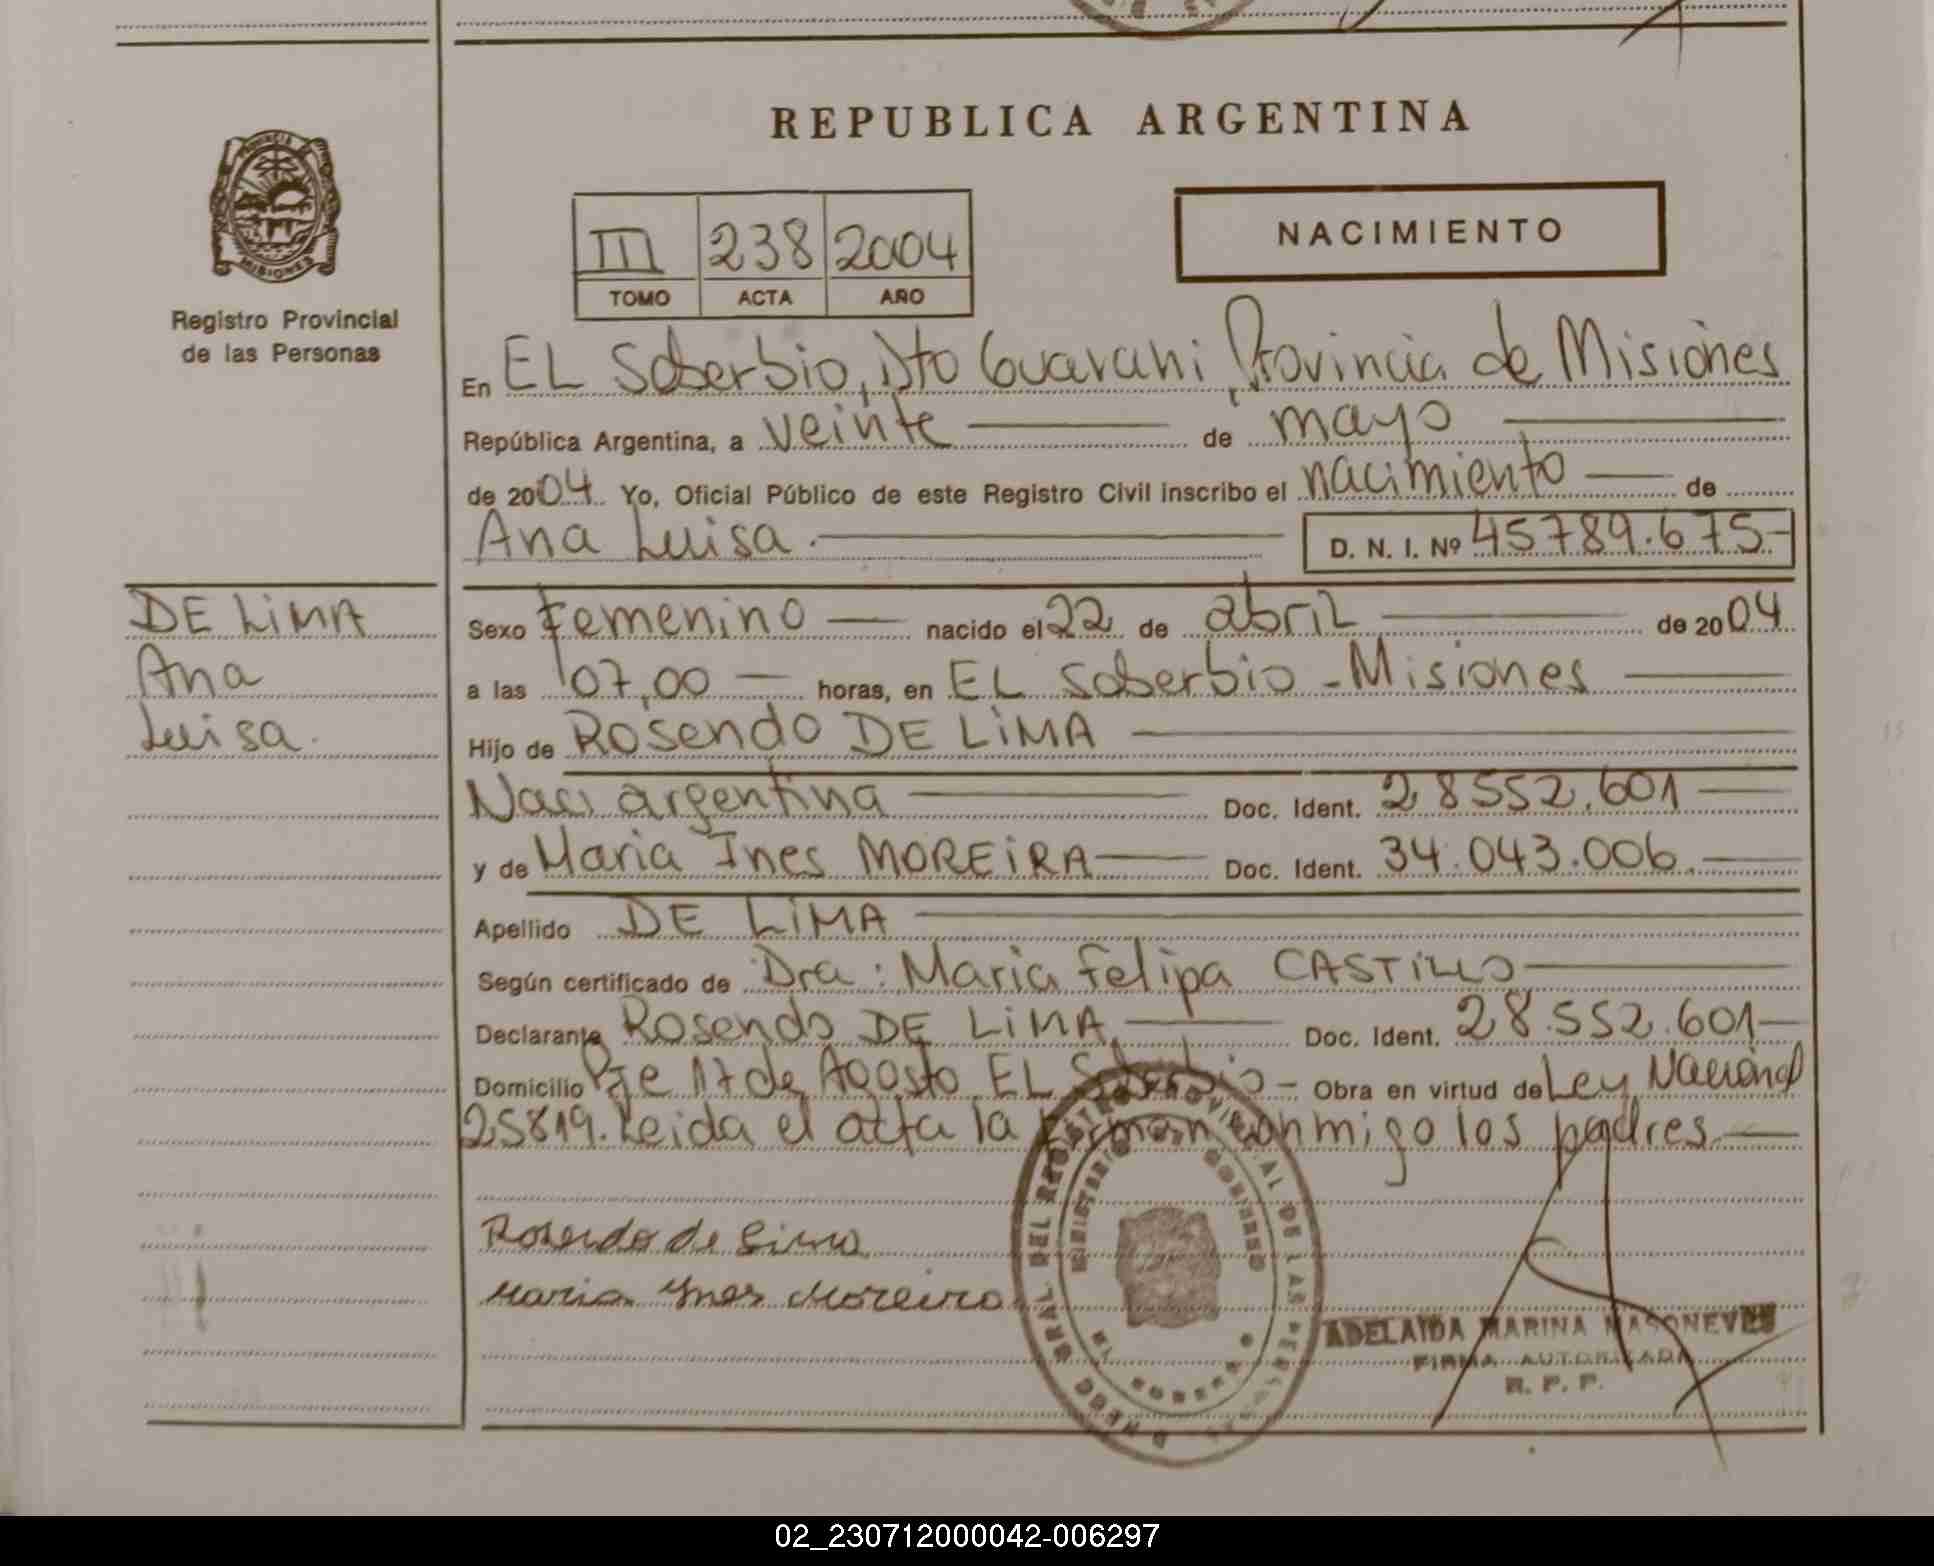 REPUBLICA ARGENTINA
PROVINCIA
MISIONES
Registro Provincial
de las Personas
III 238 2004
TOMO ACTA AÑO
NACIMIENTO
En EL Soberbio, Dto Guarani Provincia de Misiones
República Argentina, a veinte de mayo
de 2004 Yo, Oficial Público de este Registro Civil inscribo el nacimiento de
Ana Luisa. D. N. I. Nº 45789.675-
DE LIMA
Ana
Luisa.
Sexo femenino nacido el 22 de abril de 2004
a las 07,00 horas, en EL Soberbio - Misiones
Hijo de Rosendo DE LIMA
Nac. argentina Doc. Ident. 28552.601
y de Maria Ines MOREIRA Doc. Ident. 34.043.006.
Apellido DE LIMA
Según certificado de Dra: Maria Felipa CASTILLO
Declarante Rosendo DE LIMA Doc. Ident. 28.552.601
Domicilio Pje 17 de Agosto EL Soberbio - Obra en virtud de Ley Nacional
25819. Leida el acta la firman conmigo los padres
Rosendo de Lima
Maria Ynes Moreira
DIREC. GRAL. DEL REGISTRO PROVINCIAL DE LAS PERSONAS
MINISTERIO GOBIERNO
ADELAIDA MARINA MASONEVES
FIRMA AUTORIZADA
R. P. P.
02_230712000042-006297